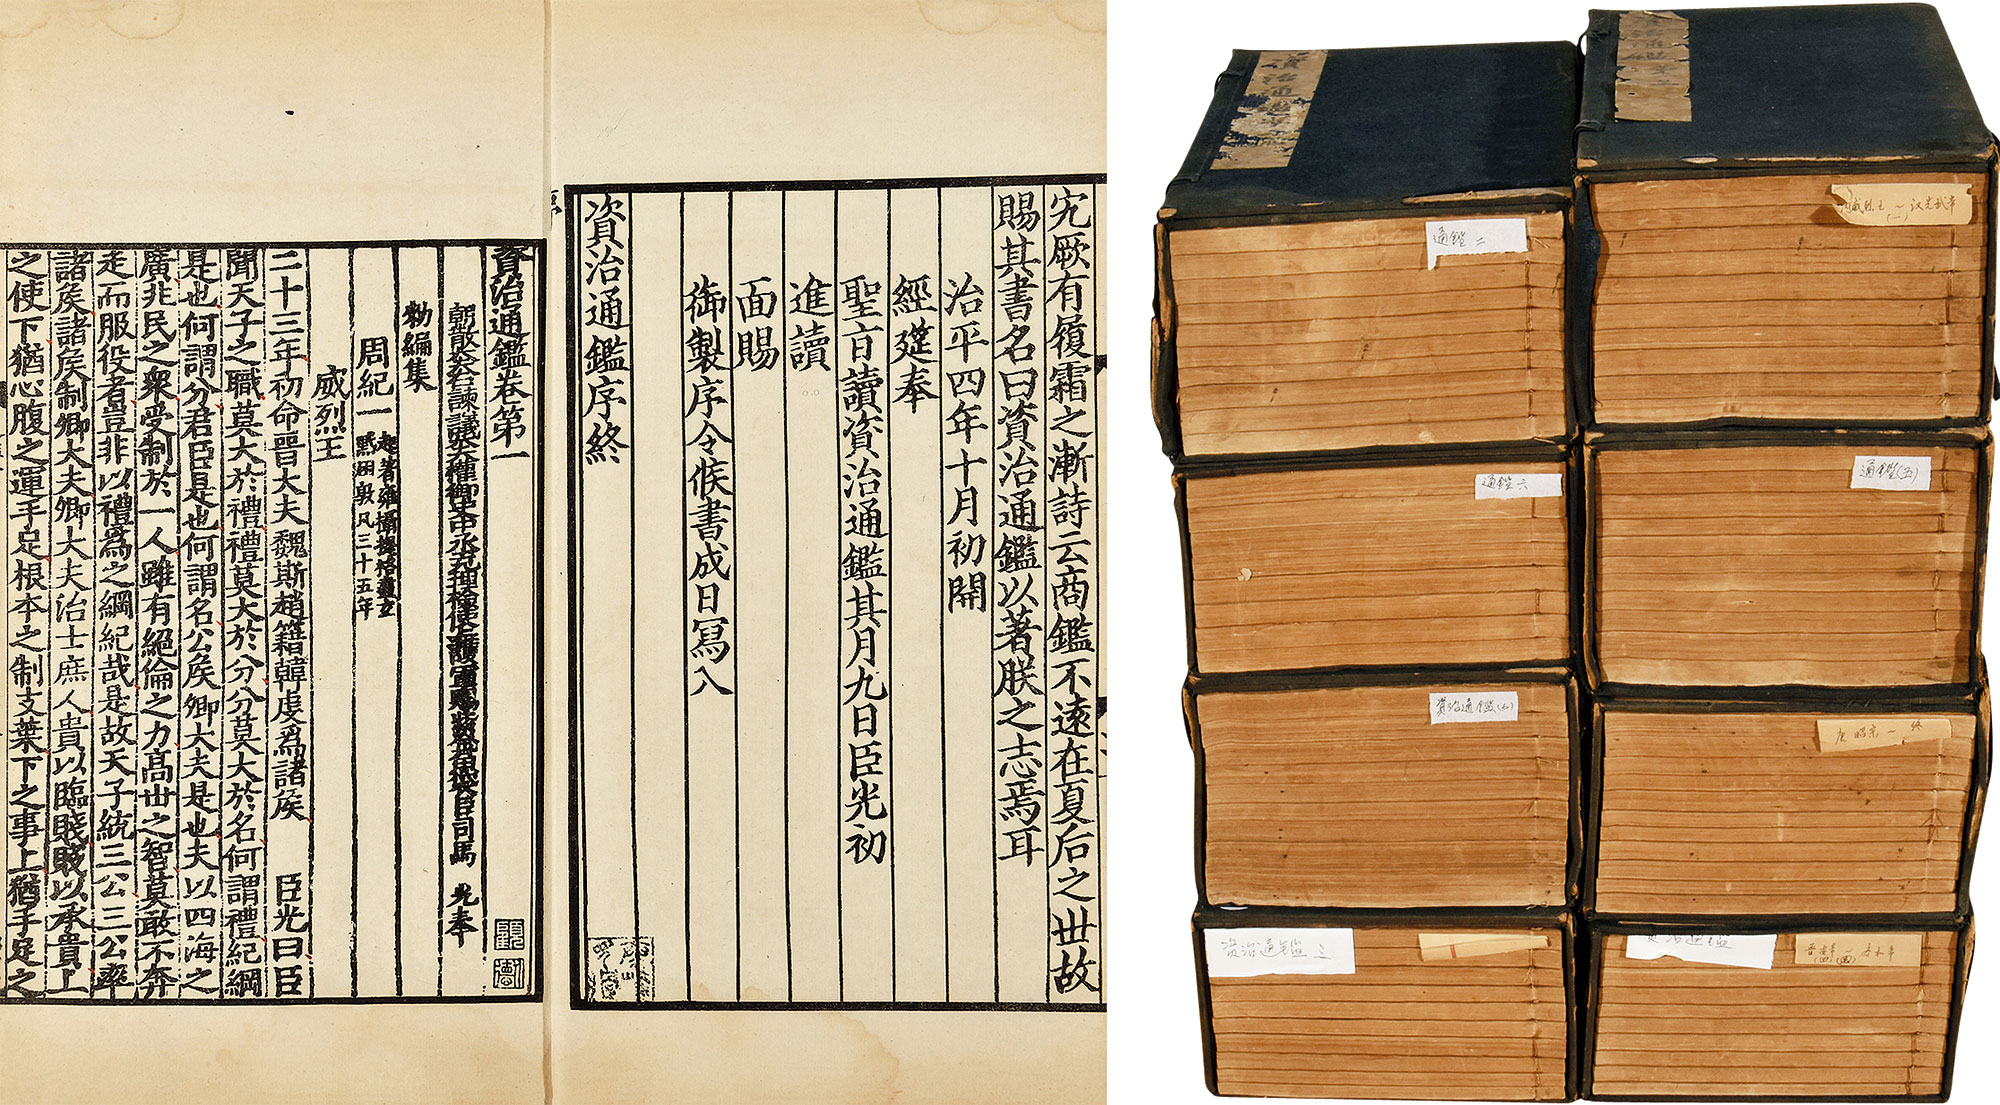 究厥有履霜之漸詩云商鑑不遠在夏后之世故
賜其書名曰資治通鑑以著朕之志焉耳
治平四年十月初開
經筵奉
聖旨讀資治通鑑其月九日臣光初
進讀
面賜
御製序令候書成日寫入
資治通鑑序終
資治通鑑卷第一
朝散大夫右諫議大夫權御史中丞充理檢使
司馬 光奉
勑編集
周紀一
起著雍攝提格盡玄
黓困敦凡三十五年
威烈王
二十三年初命晉大夫魏斯趙籍韓虔為諸侯 臣光曰臣
聞天子之職莫大於禮禮莫大於分分莫大於名何謂禮紀綱
是也何謂分君臣是也何謂名公侯卿大夫是也夫以四海之
廣兆民之衆受制於一人雖有絕倫之力高世之智莫敢不奔
走而服役者豈非以禮為之綱紀哉是故天子統三公三公率
諸侯諸侯制卿大夫卿大夫治士庶人貴以臨賤賤以承貴上
之使下猶心腹之運手足根本之制支葉下之事上猶手足之
資治通鑑
通鑑
通鑑 二
威烈王～汉光武帝
(一)
通鑑 六
通鑑(五)
資治通鑑(七)
唐昭宗 — 终
资治通鑑 三
资治通鑑